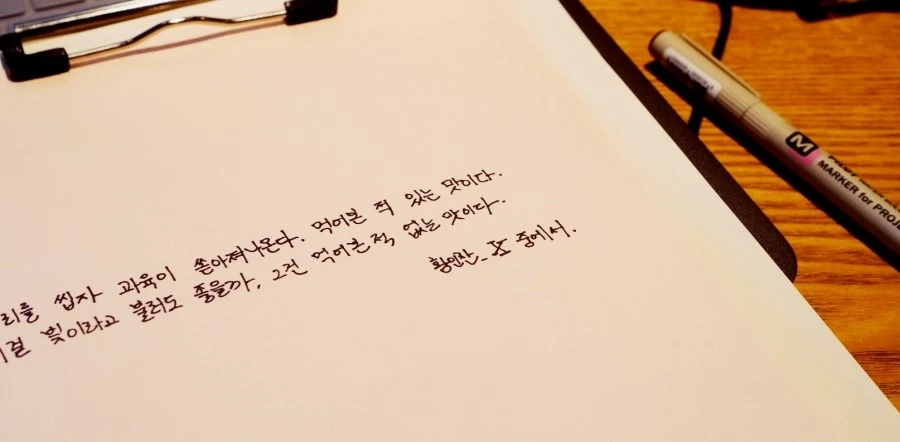 리를 씹자 과육이 쏟아져나온다. 먹어본 적 있는 맛이다.
이걸 빛이라고 불러도 좋을까, 그건 먹어본 적 없는 맛이다.
황인찬_ 중에서.
M
MARKER for PROJE